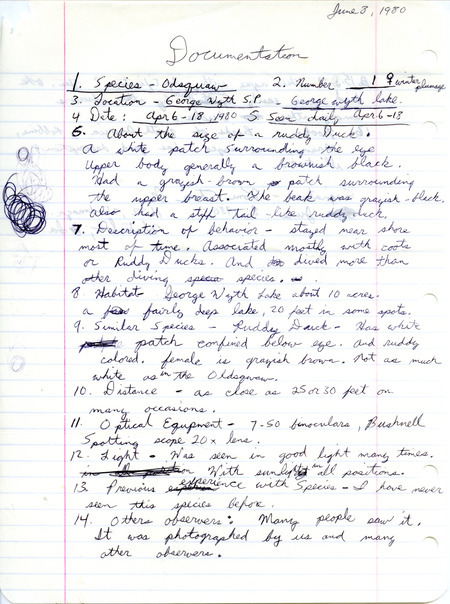 June 3, 1980
Documentation
1. Species - Oldsquaw 2. Number 1 ♀ winter plumage
3. Location - George Wyth S.P. George Wyth lake.
4 Date: Apr 6 - 18, 1980 5 Seen daily Apr 6-18
6. About the size of a ruddy Duck.
A white patch surrounding the eye
Upper body generally a brownish black.
Had a grayish-brown patch surrounding
the upper breast. The beak was grayish-black.
Also had a stiff tail like ruddy duck.
7. Description of behavior - stayed near shore
most of time. Associated mostly with coots
or Ruddy Ducks. And dived more than
other diving species.
8 Habitat George Wyth Lake about 10 acres.
a fairly deep lake, 20 feet in some spots.
9. Similar Species - Ruddy Duck - Has white
patch confined below eye. and ruddy
colored. female is grayish brown. Not as much
white as in the Oldsquaw.
10. Distance - as close as 25 or 30 feet on
many occasions.
11. Optical Equipment - 7-50 binoculars, Bushnell
Spotting scope 20x lens.
12. Light - Was seen in good light many times.
With sunlight in all positions.
13. Previous experience with Species - I have never
seen this species before.
14. Others observers: Many people saw it.
It was photographed by us and many
other observers.